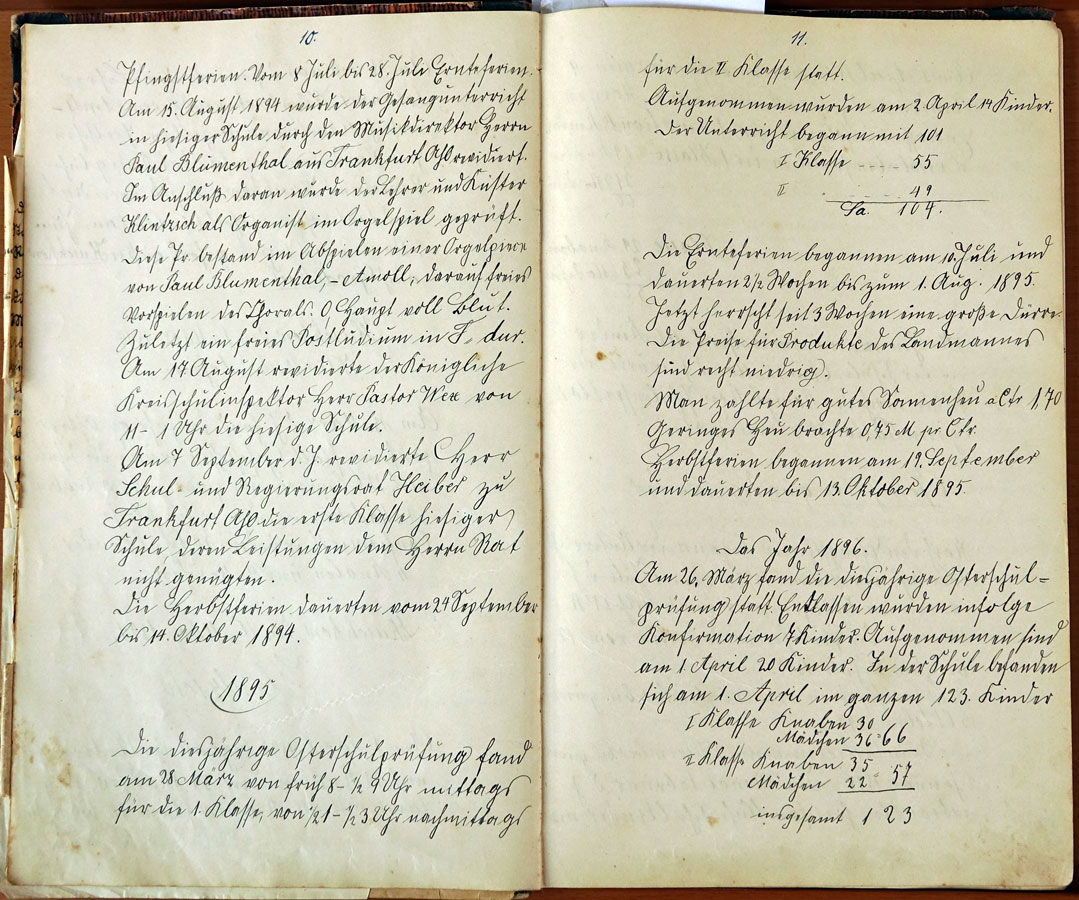 10.
Pfingstferien. Vom 8 Juli bis 28. Juli Ernteferien.
Am 15. August 1894 wurde der Gesangunterricht
in hiesiger Schule durch den Musikdirektor Herrn
Paul Blumenthal aus Frankfurt a/O revidiert.
Im Anschluß daran wurde der Lehrer und Küster
Klintzsch als Organist im Orgelspiel geprüft.
Diese Pr bestand im Abspielen einer Orgelpiece
von Paul Blumenthal, – Amoll, darauf freies
Vorspielen des Chorals. O, Haupt voll Blut.
Zuletzt ein freies Postludium in F, dur.
Am 17 August revidierte der Königliche
Kreisschulinspektor Herr Pastor von
11 – 1 Uhr die hiesige Schule.
Am 7 September d. J. revidierte Herr
Schul- und Regierungsrat Heiber zu
Frankfurt a/O die erste Klasse hiesiger
Schule deren Leistungen dem Herrn Rat
nicht genügten.
Die Herbstferien dauerten vom 24 September
bis 14. Oktober 1894.
1895
Die diesjährige Osterschulprüfung fand
am 28 März von früh 8 – ½ 9 Uhr mittags
für die 1. Klasse, von ½1 – ½3 Uhr nachmittags
11.
für die II Klasse statt.
Aufgenommen wurden am 2 April 14 Kinder.
Der Unterricht begann mit 101
I Klasse 55
II 49
Sa. 104.
Die Ernteferien begannen am 10. Juli und
dauerten 2½ Wochen bis zum 1. Aug. 1895.
Jetzt herrscht seit 3 Wochen eine große Dürre.
Die Preise für Produkte des Landmannes
sind recht niedrig.
Man zahlte für gutes Sommerheu a Ctr 1,70
Geringes Heu brachte 0,75 M pr Ctr.
Herbstferien begannen am 19. September
und dauerten bis 13. Oktober 1895.
Das Jahr 1896.
Am 26. März fand die diesjährige Osterschul=
prüfung statt. Entlassen wurden infolge
Konfirmation 7 Kinder. Aufgenommen sind
am 1 April 20 Kinder. In der Schule befanden
sich am 1. April im ganzen 123. Kinder
I Klasse Knaben 30
Mädchen 36 = 66
II Klasse Knaben 35
Mädchen 22 = 57
insgesamt 123